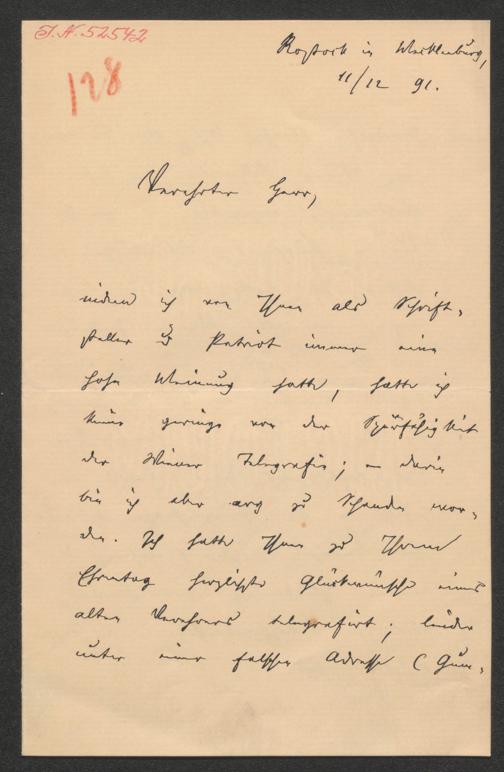 J. N. 52542
128
Rostock in Mecklenburg,
11/12 91.
Verehrter Herr,
indem ich von Ihnen als Schrift-
steller & Patriot immer eine
hohe Meinung hatte, hatte ich
keine geringe von der Spürfähigkeit
der Wiener Telegrafie; – darin
bin ich aber arg zu Schanden wor-
den. Ich hatte Ihnen zu Ihrem
Ehrentag herzlichste Glückwünsche eines
alten Verehrers telegrafirt; leider
unter einer falschen Adresse (Gum-